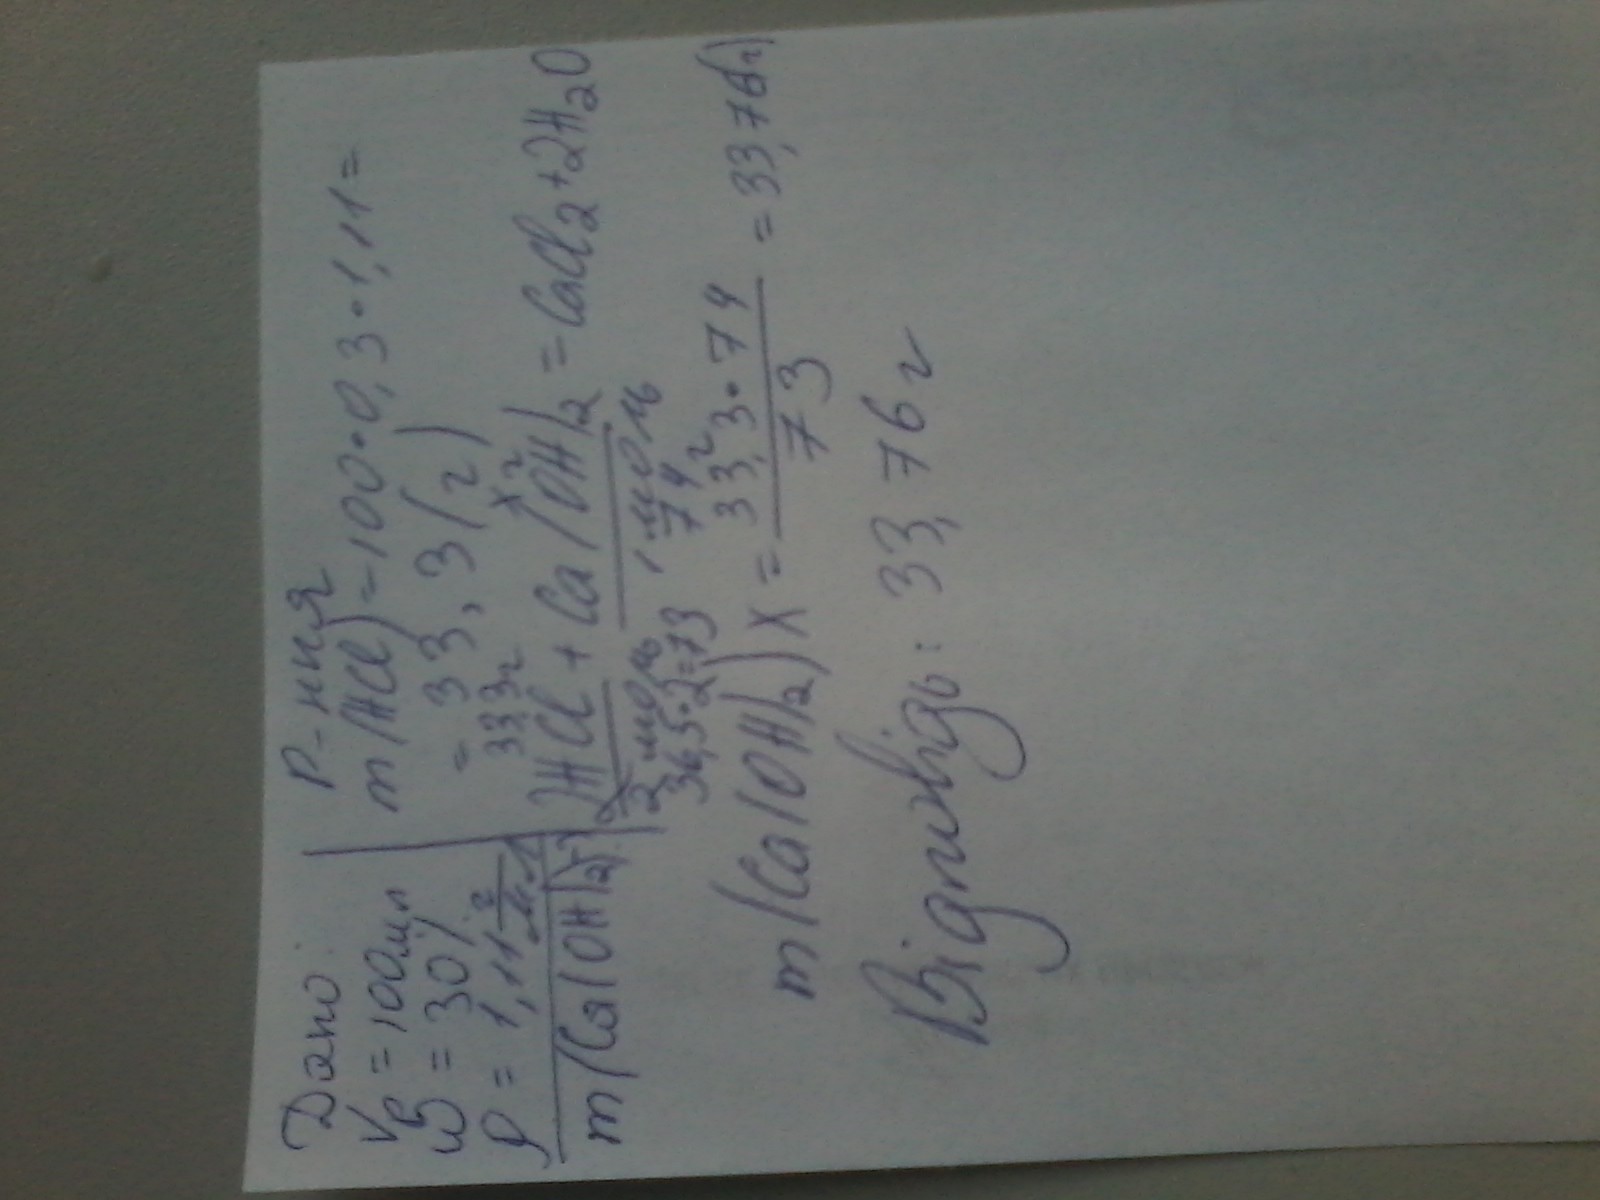 Дано:
Vв = 100мл
W = 30%
ρ = 1,11 г/мл
m(Ca(OH)2)-?
Р-ння
m(HCl)=100•0,3•1,11=
= 33,3(г)
33,3г xг
2HCl + Ca(OH)2 = CaCl2+2H2O
2 моль 1 моль
36,5•2=73 74
m(Ca(OH)2) x = 33,3•74/73 = 33,76(г)
Відповідь: 33,76 г